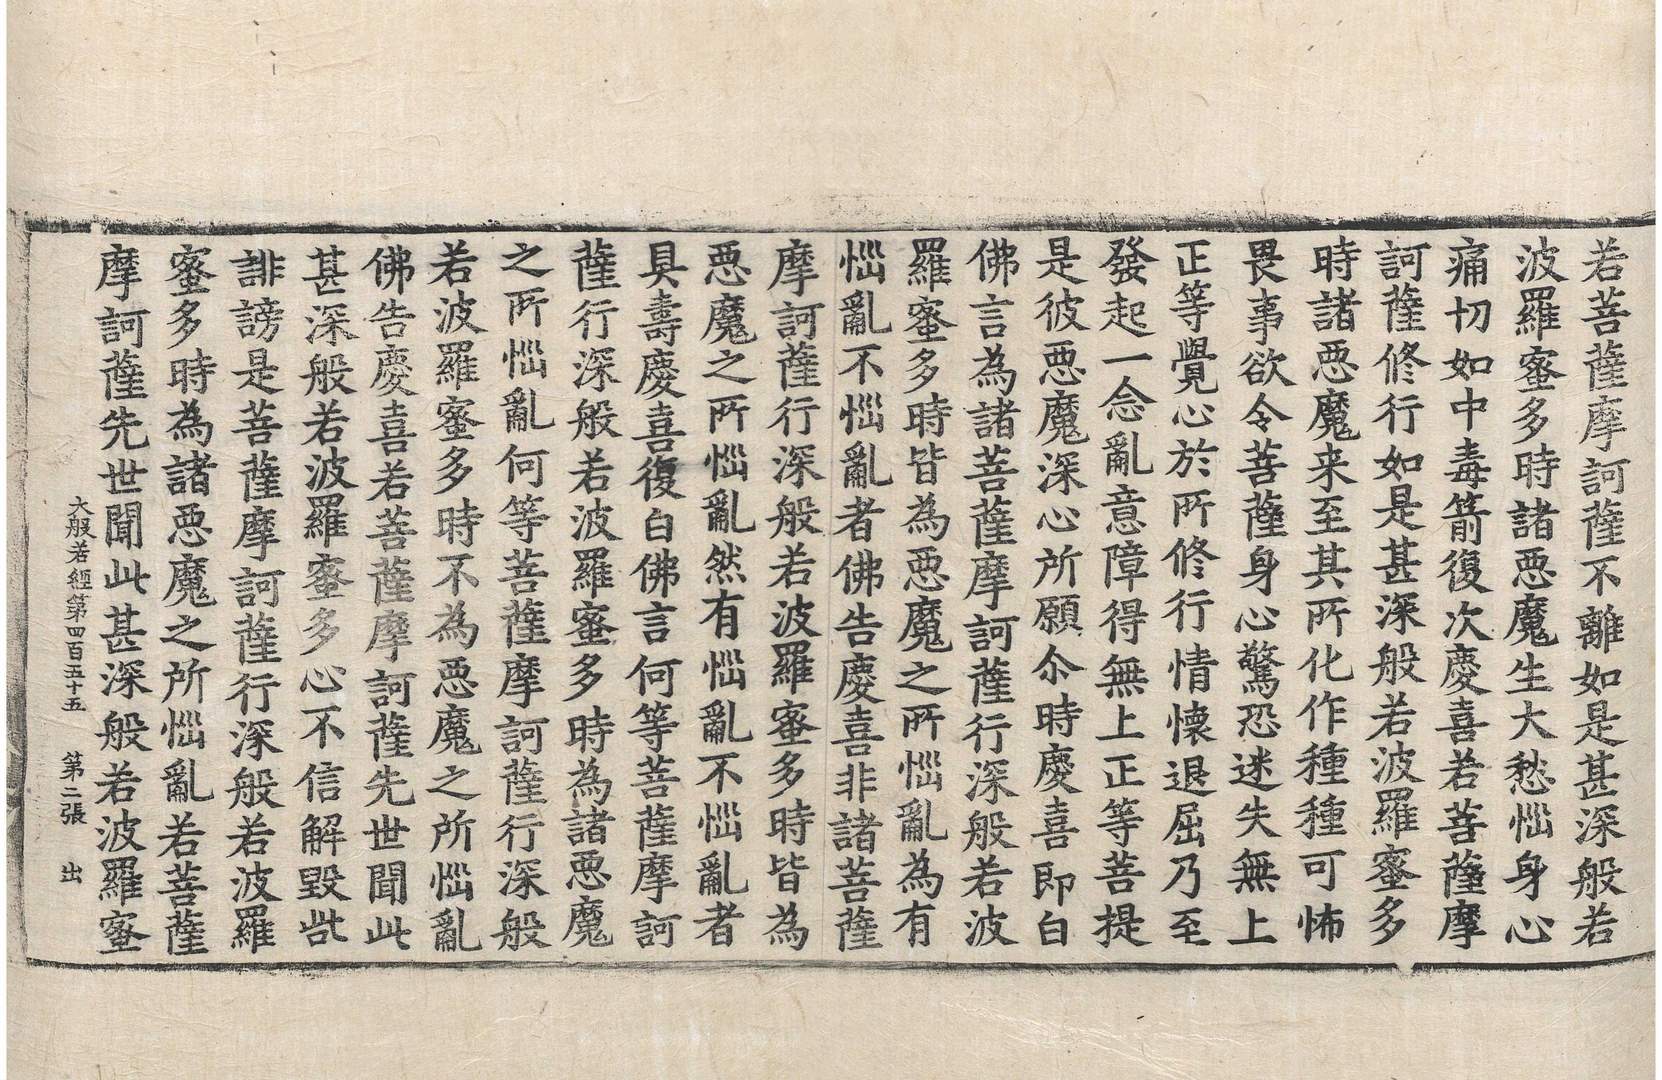 若菩薩摩訶薩不離如是甚深般若
波羅蜜多時諸惡魔生大愁惱身心
痛切如中毒箭復次慶喜若菩薩摩
訶薩修行如是甚深般若波羅蜜多
時諸惡魔来至其所化作種種可怖
畏事欲令菩薩身心驚恐迷失無上
正等覺心於所修行情懷退屈乃至
發起一念亂意障得無上正等菩提
是彼惡魔深心所願尒時慶喜即白
佛言為諸菩薩摩訶薩行深般若波
羅蜜多時皆為惡魔之所惱亂為有
惱亂不惱亂者佛告慶喜非諸菩薩
摩訶薩行深般若波羅蜜多時皆為
惡魔之所惱亂然有惱亂不惱亂者
具壽慶喜復白佛言何等菩薩摩訶
薩行深般若波羅蜜多時為諸惡魔
之所惱亂何等菩薩摩訶薩行深般
若波羅蜜多時不為惡魔之所惱亂
佛告慶喜若菩薩摩訶薩先世聞此
甚深般若波羅蜜多心不信解毀呰
誹謗是菩薩摩訶薩行深般若波羅
蜜多時為諸惡魔之所惱亂若菩薩
摩訶薩先世聞此甚深般若波羅蜜
大般若經第四百五十五 第二張 出